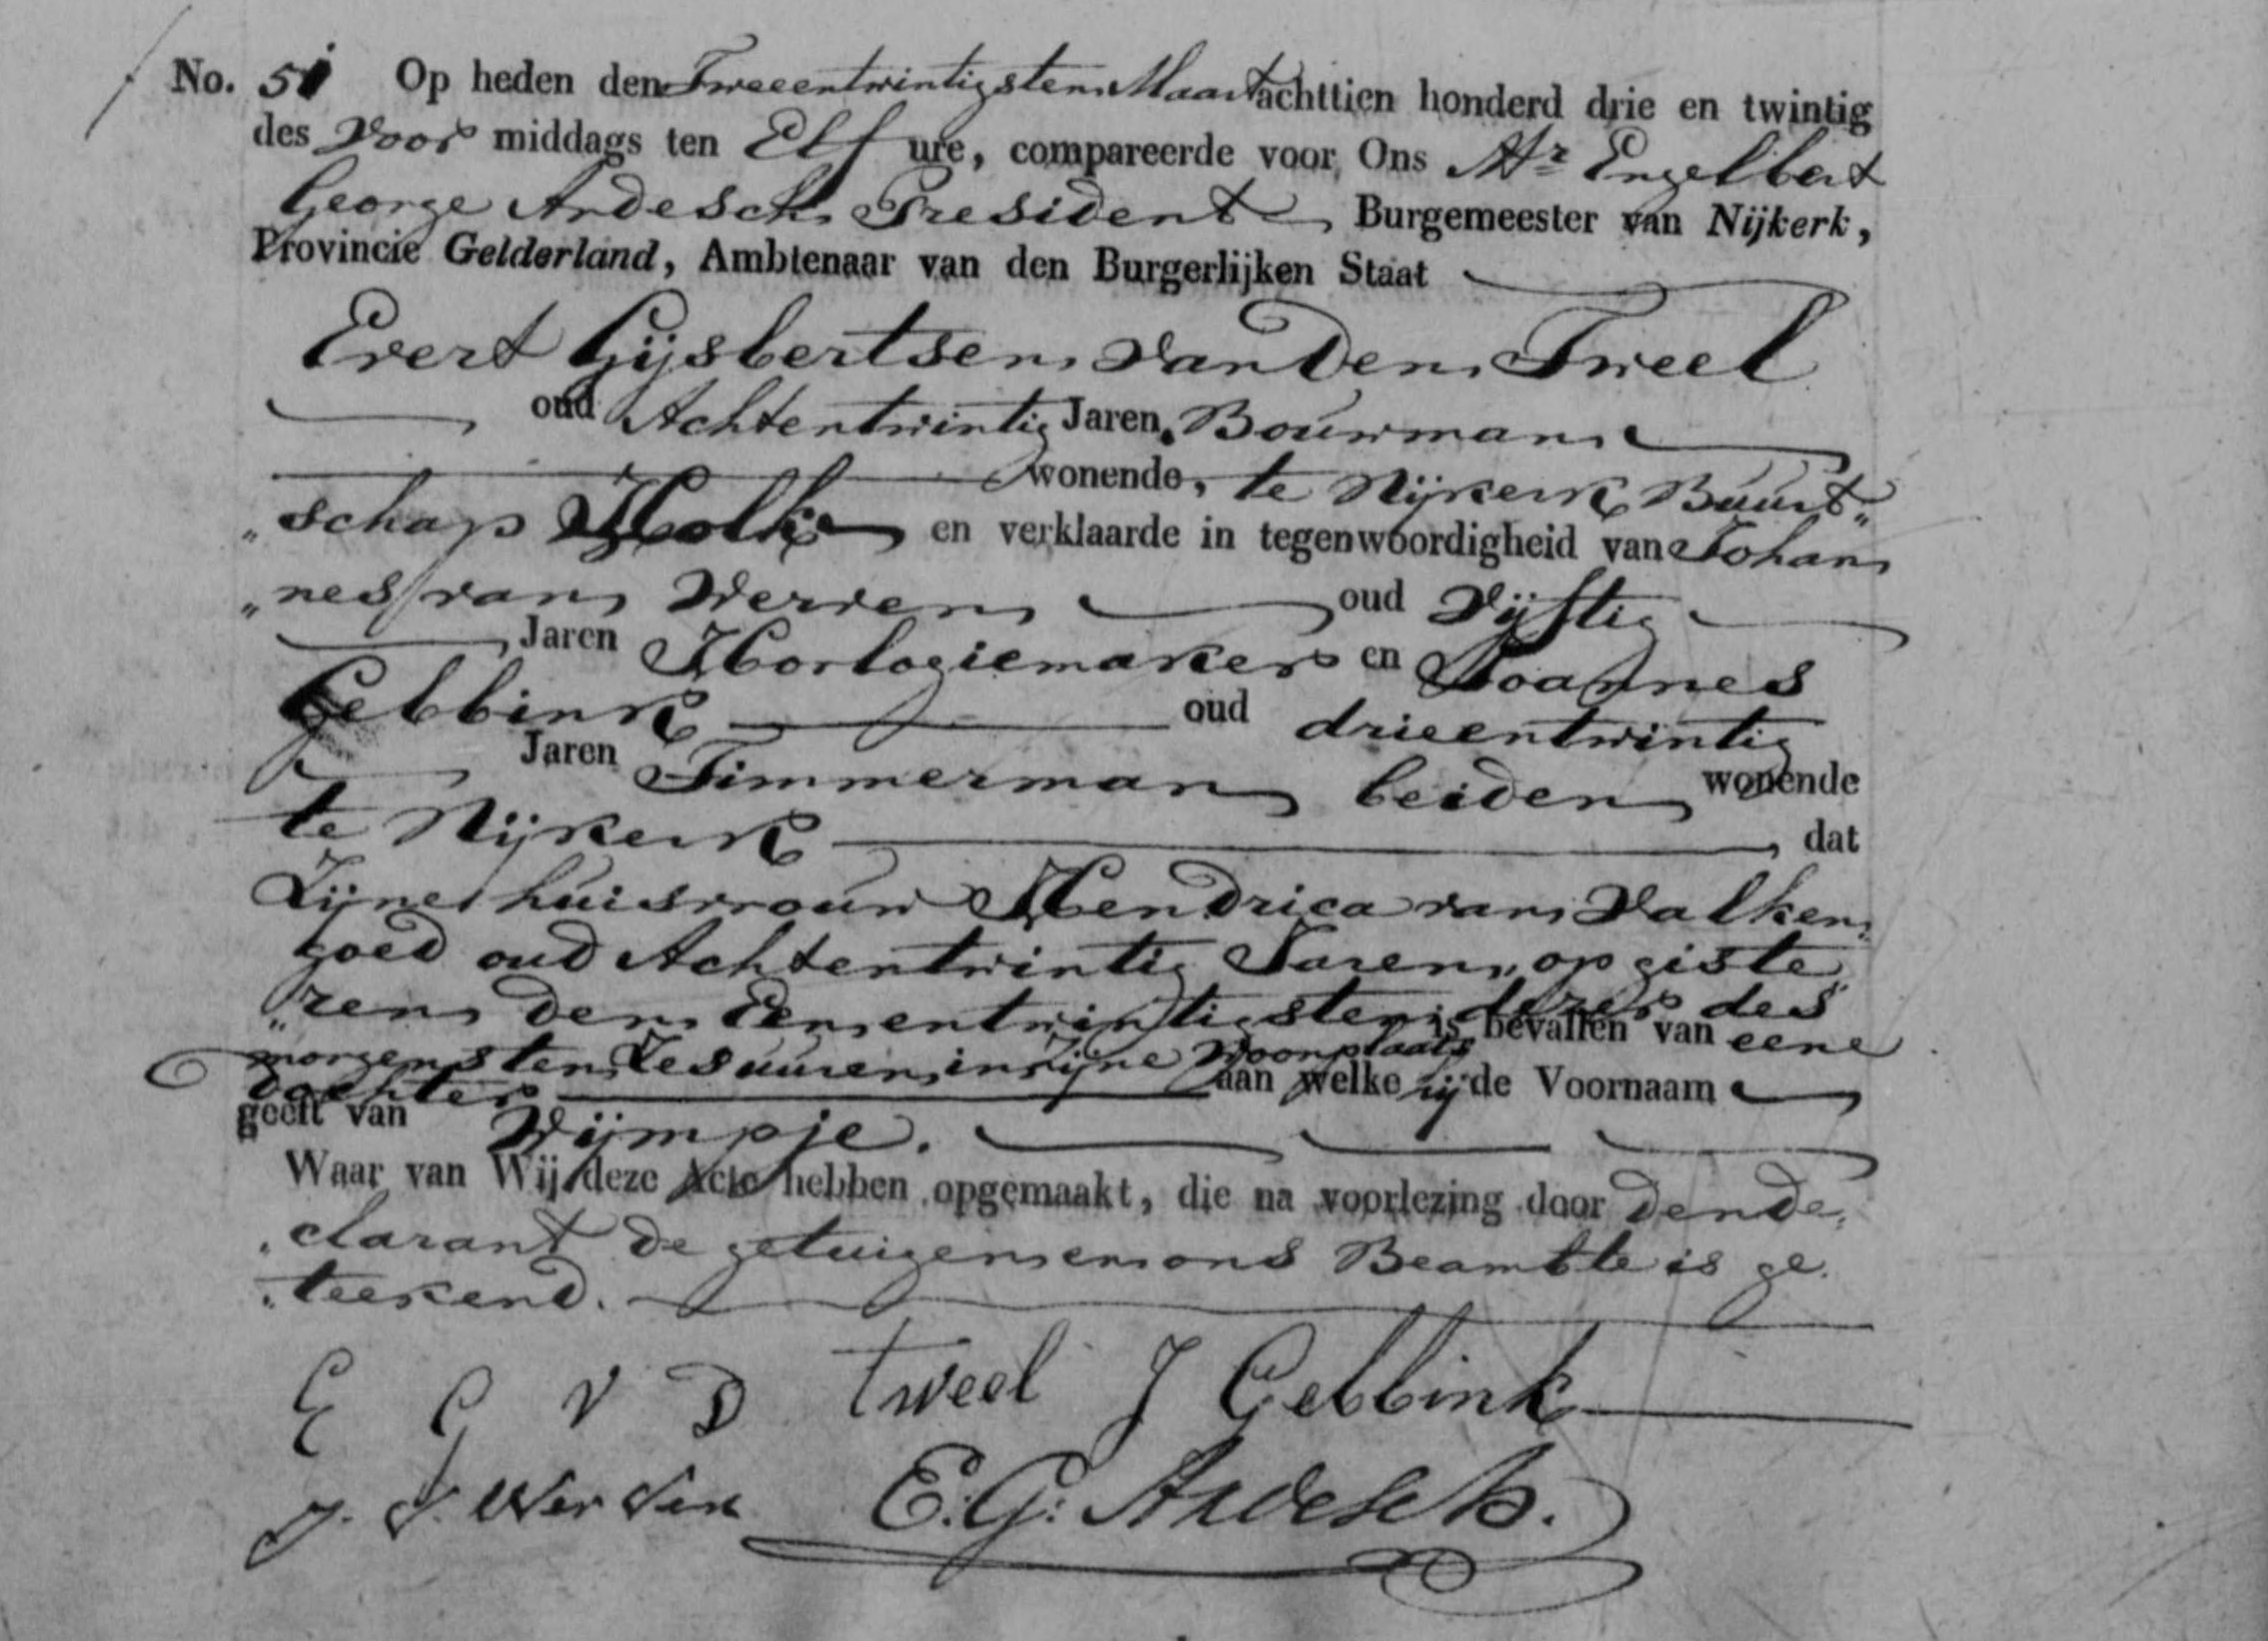 No. 51 Op heden den Tweeentwintigsten Maart achttien honderd drie en twintig
des Voor middags ten Elf ure, compareerde voor Ons Mr Engelbert
George Ardesch President Burgemeester van Nijkerk,
Provincie Gelderland, Ambtenaar van den Burgerlijken Staat
Evert Gijsbertsen van den Tweel
oud Achtentwintig Jaren, Bouwman
wonende, te Nijkerk Buurt„
„schap Holk en verklaarde in tegenwoordigheid van Johan
„nes van Werven oud Vijftig
Jaren Horlogiemaker en Joannes
Gebbink oud drieentwintig
Jaren Timmerman beiden wonende
te Nijkerk, dat
Zijne huisvrouw Hendrica van Valken„
goed oud Achtentwintig Jaren, op giste„
„ren den Eenentwintigsten dezer des
morgens ten Zes uuren, in zijne Woonplaats is bevallen van eene
dochter aan welke hij de Voornaam
geeft van Wijmpje.
Waar van Wij deze Acte hebben opgemaakt, die na voorlezing door den de„
„clarant de getuigen en ons Beambte is ge„
„teekend.
E G V D tweel J Gebbink
J. V. Werven E. G. Ardesch.